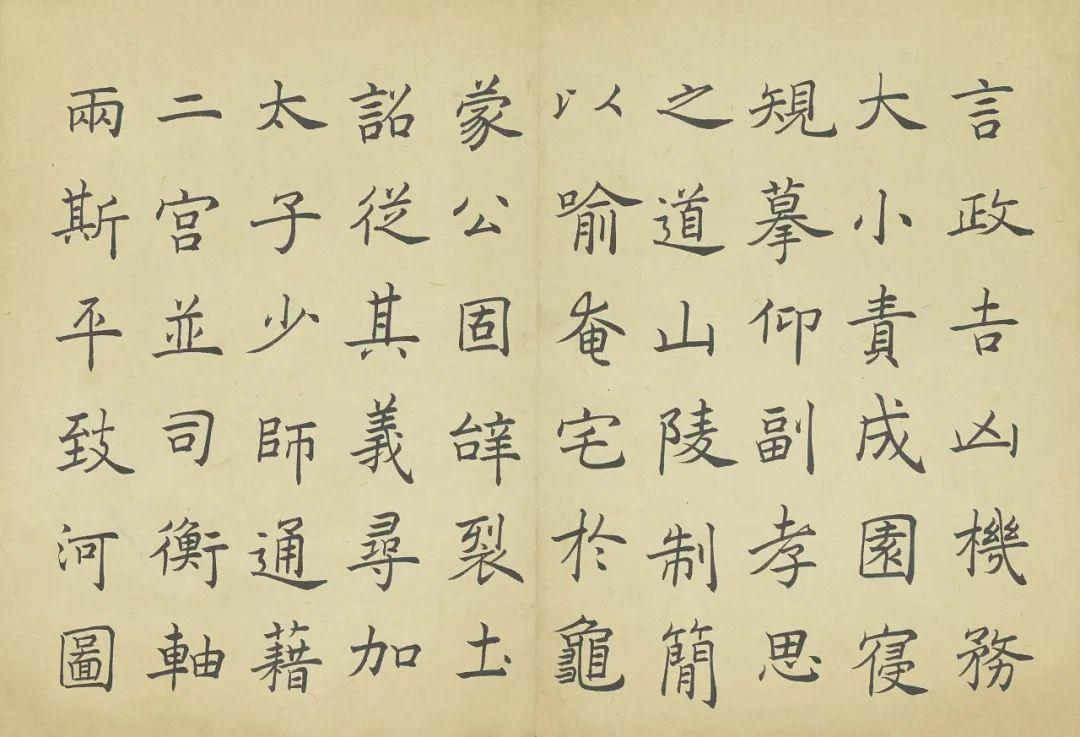 言政吉凶機務
大小責成園寑
規摹仰副孝思
之道山陵制簡
以喻奄宅於龜
蒙公固辝裂土
詔從其義尋加
太子少師通藉
二宮並司衡軸
兩斯平致河圖